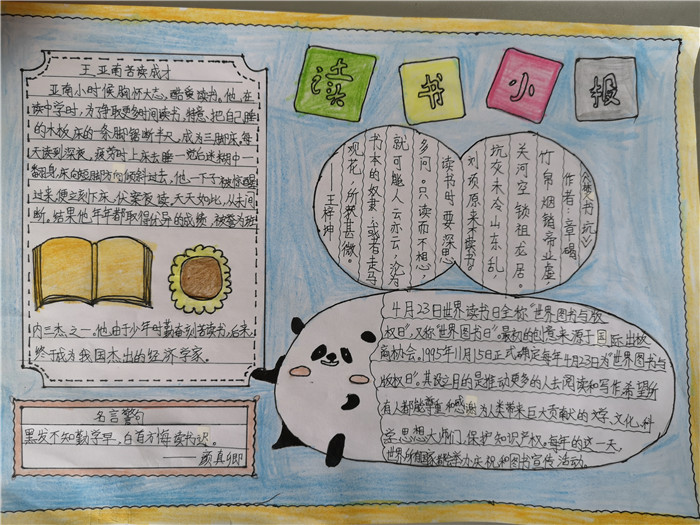 读书小报
王亚南苦读成才
亚南小时候胸怀大志，酷爱读书。他在
读中学时，为争取更多时间读书，特意把自己睡
的木板床的一条脚锯断半尺，成为三脚床。每
天读到深夜，疲劳时上床去睡一觉后迷糊中一
翻身，床向短脚方向倾斜过去，他一下子被惊醒
过来，便立刻下床，伏案夜读。天天如此，从未间
断。结果他年年都取得优异的成绩，被誉为班
内三杰之一。他由于少年时勤奋刻苦读书，后来，
终于成为我国杰出的经济学家。
名言警句
黑发不知勤学早，白首方悔读书迟。
——颜真卿
《焚书坑》
作者：章碣
竹帛烟销帝业虚，
关河空锁祖龙居。
坑灰未冷山东乱，
刘项原来不读书。
读书时要深思
多问。只读而不想，
就可能人云亦云，沦为
书本的奴隶；或者走马
观花，所获甚微。
——王梓坤
4月23日世界读书日全称"世界图书与版
权日"，又称"世界图书日"。最初的创意来源于国际出版
商协会。1995年11月15日正式确定每年4月23日为"世界图书与
版权日"。其设立目的是推动更多的人去阅读和写作，希望所
有人都能尊重和感谢为人类带来巨大贡献的文学、文化、科
学思想大师们，保护知识产权。每年的这一天，
世界所有国家都举办庆祝和图书宣传活动。